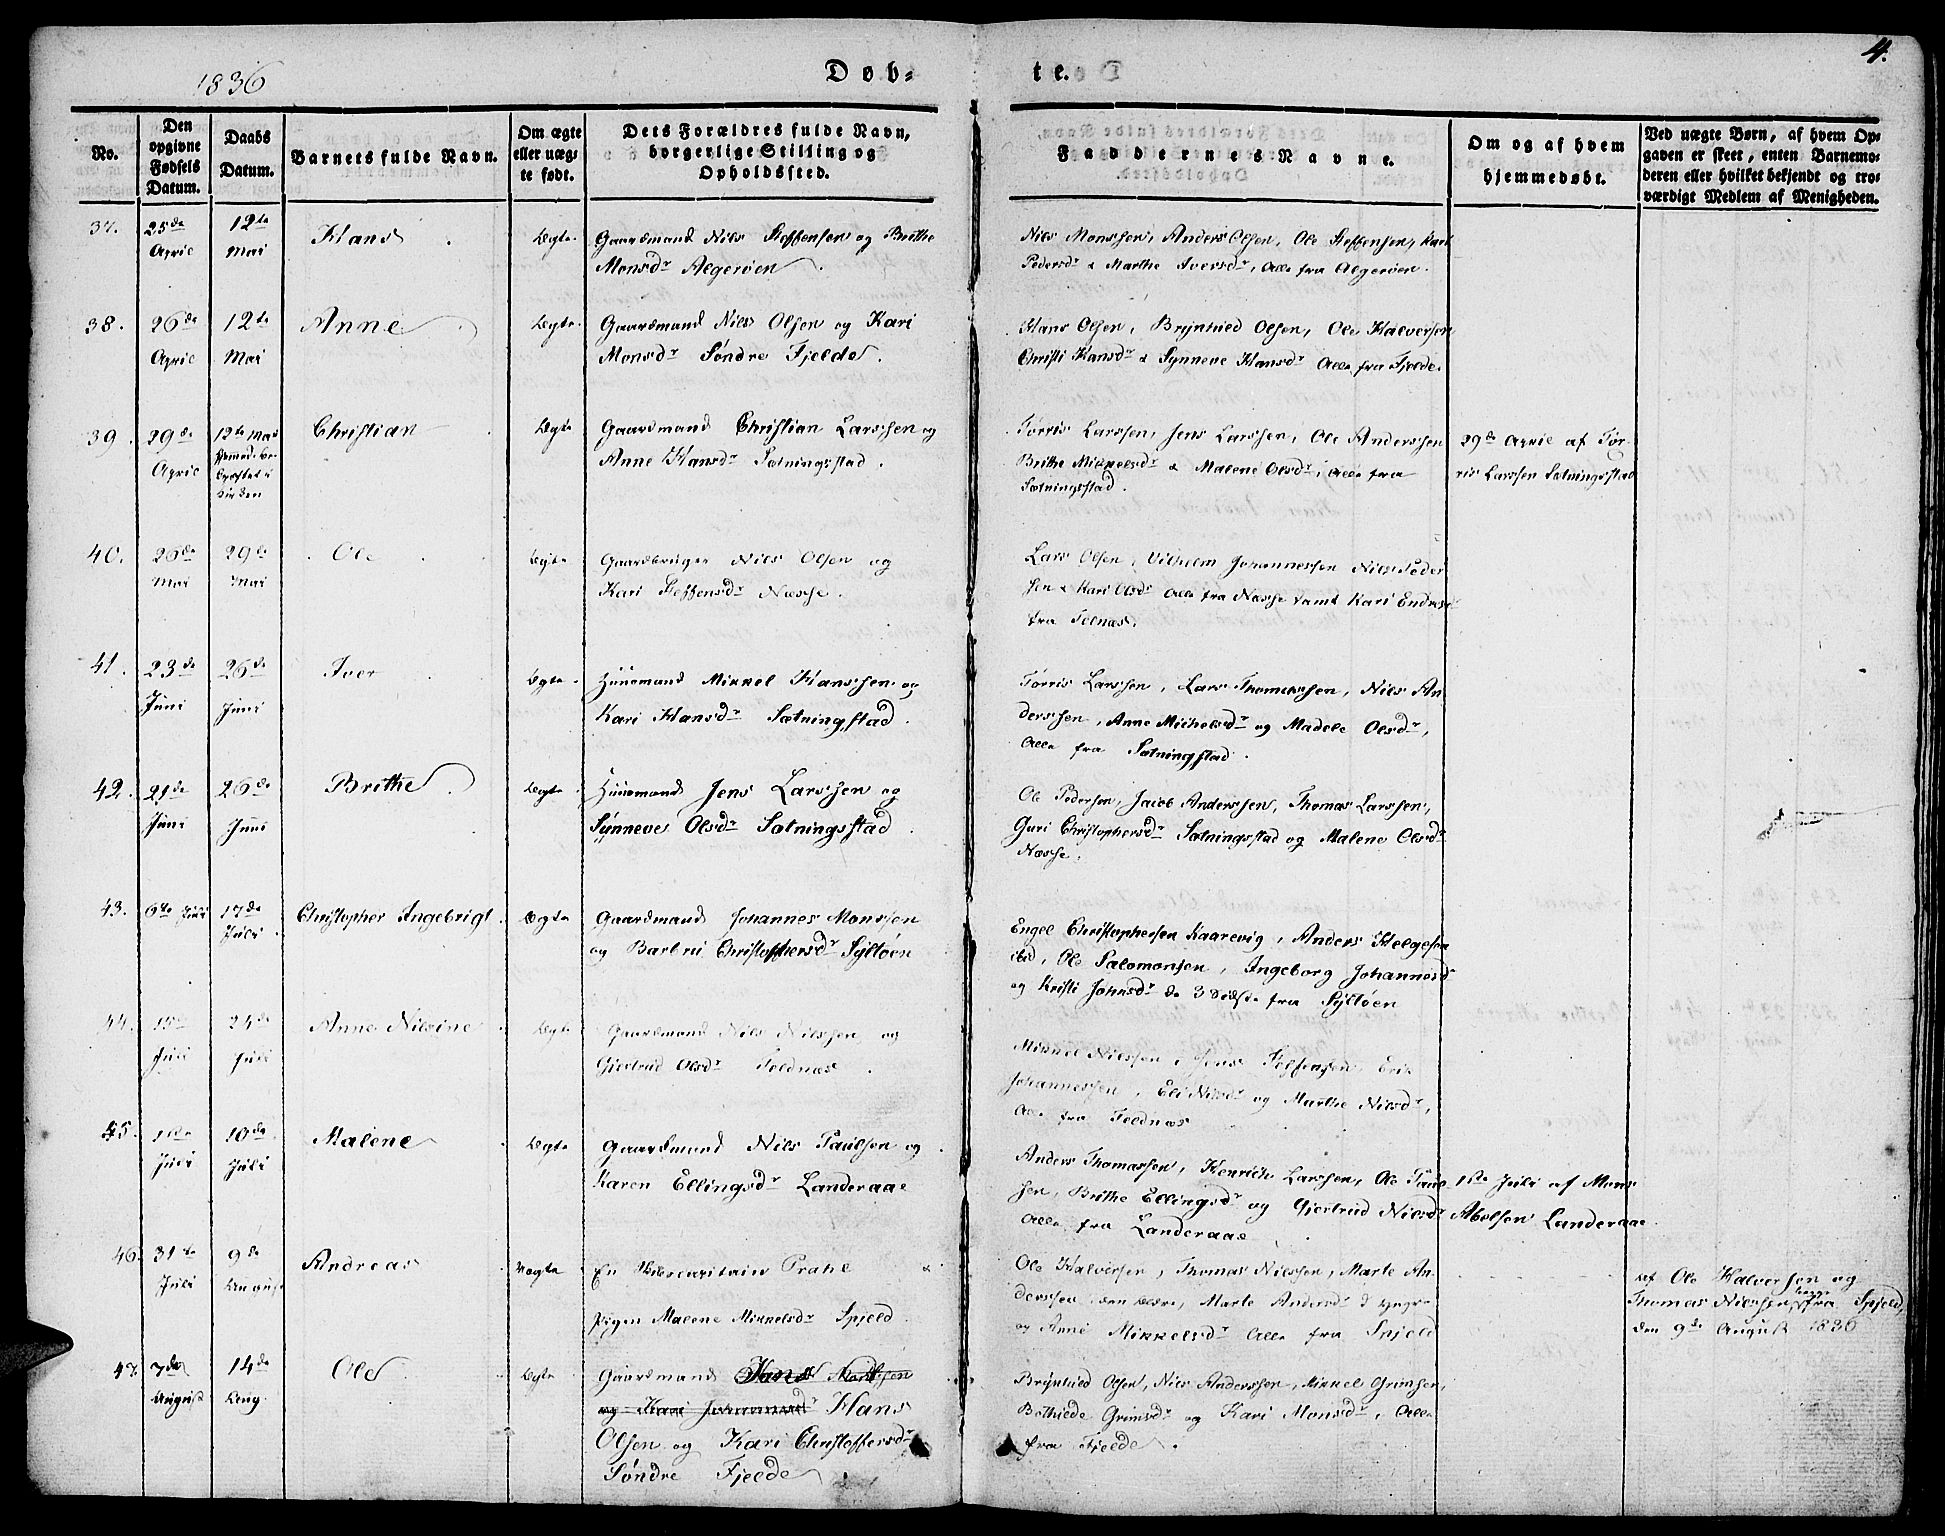 1836
Døb-
te.
4.
No.
Den opgivne Fødsels Datum.
Daabs Datum.
Barnets fulde Navn.
Om ægte eller uægte født.
Dets Forældres fulde Navn, borgerlige Stilling og Opholdssted.
Faddernes Navne.
Om og af hvem hjemmedøbt.
Ved uægte Børn, af hvem Opgaven er skeet, enten Barnemoderen eller hvilket bekjendt og troværdigt Medlem af Menigheden.
37. 25de April
12te Mai
Hans
Ægte
Gaardmand Nils Steffensen og Brithe
Monsdr Algerøen
Nils Monssen, Anders Olsen, Ole Steffensen, Kari
Pedersdr & Marthe Iversdr, Alle fra Algerøen.
38. 26de April
12te Mai
Anne
Ægte
Gaardmand Nils Olsen og Kari
Monsdr Søndre Fjelde.
Hans Olsen, Brÿnhild Olsen, Ole Halversen
Christi Hansdr & Synneve Hansdr Alle fra Fjelde.
39. 29de April
12te Mai
Christian
Ægte
Gaardmand Christian Larssen og
Anne Hansdr Sætningsstad.
Tørris Larssen, Jens Larssen, Ole Anderssen
Brithe Mikkelsdr & Malene Olsdr, Alle fra
Sætningsstad.
29de April af Tør-
ris Larssen Sætningsstad
40. 26de Mai
29de Mai
Ole
Ægte
Gaardbruger Nils Olsen og
Kari Steffensdr Næsse.
Lars Olsen, Vilhelm Johannessen Nils Peder
sen & Kari Olsdr Alle fra Næsse samt Kari
fra Telnæs.
41. 23de Juni
26de Juni
Iver
Ægte
Huusmand Mikkel Hanssen og
Kari Hansdr Sætningstad.
Tørris Larssen, Lars Thomassen, Nils An-
derssen, Anne Michelsdr og Madele Olsdr,
Alle fra Sætningstad.
42. 21de Juni
26de Juni
Brithe
Ægte
Huusmand Jens Larssen og
Sÿnneve Olsdr Sætningsstad
Ole Pedersen, Jacob Anderssen, Thomas Larssen,
Guri Christophersdr Sætningsstad og Malene Olsdr
Næsse.
43. 6te Juli
17de Juli
Christopher Ingebrigt
Ægte
Gaardmand Johannes Monssen
og Barbru Christoffersdr Sÿltøen
Engel Christophersen Kaarevig, Anders Helgesen
ibid, Ole Salomonsen, Ingeborg Johannesd
og Kristi Johnsdr de 3 sidste fra Sÿltøen
44. 15de Juli
24de Juli
Anne Nilsine
Ægte
Gaardmand Nils Nilssen og
Giertrud Olsdr Feldnæs.
Mikkel Nilssen, Jens Steffensen, Erik
Johannessen, Eli Nilsdr og Marthe Nilsdr,
Alle fra Feldnæs
45. 1ste Juli
10de Juli
Malene
Ægte
Gaardmand Nils Paulsen og
Karen Ellingsdr Landeraae
Anders Thomassen, Henrich Larssen, Ole Paul-
sen, Brithe Ellingsdr og Giertrud Nilsdr
Alle fra Landeraae
1ste Juli af Mons
Abelsen Landeraae.
46. 31te Juli
9de August
Andreas
Uægte
En Skibscapitain Prahl &
Pigen Malene Mikkelsdr Spjeld
Ole Halversen, Thomas Nilssen, Marte An-
derssen den ældre, Marte Andersdr d yngre
og Anne Mikkelsdr Alle fra Spjeld
Af Ole Halversen og
Thomas Nilssen begge fra Spjeld,
den 9de August 1836
47. 7de August
14de Aug.
Ole
Ægte
Gaardmand
Hans
Olsen og Kari Christoffersdr
Søndre Fjelde.
Brÿnhild Olsen, Nils Anderssen, Mikkel Grimsen,
Bothilde Grimsdr og Kari Monsdr, Alle
fra Fjelde.